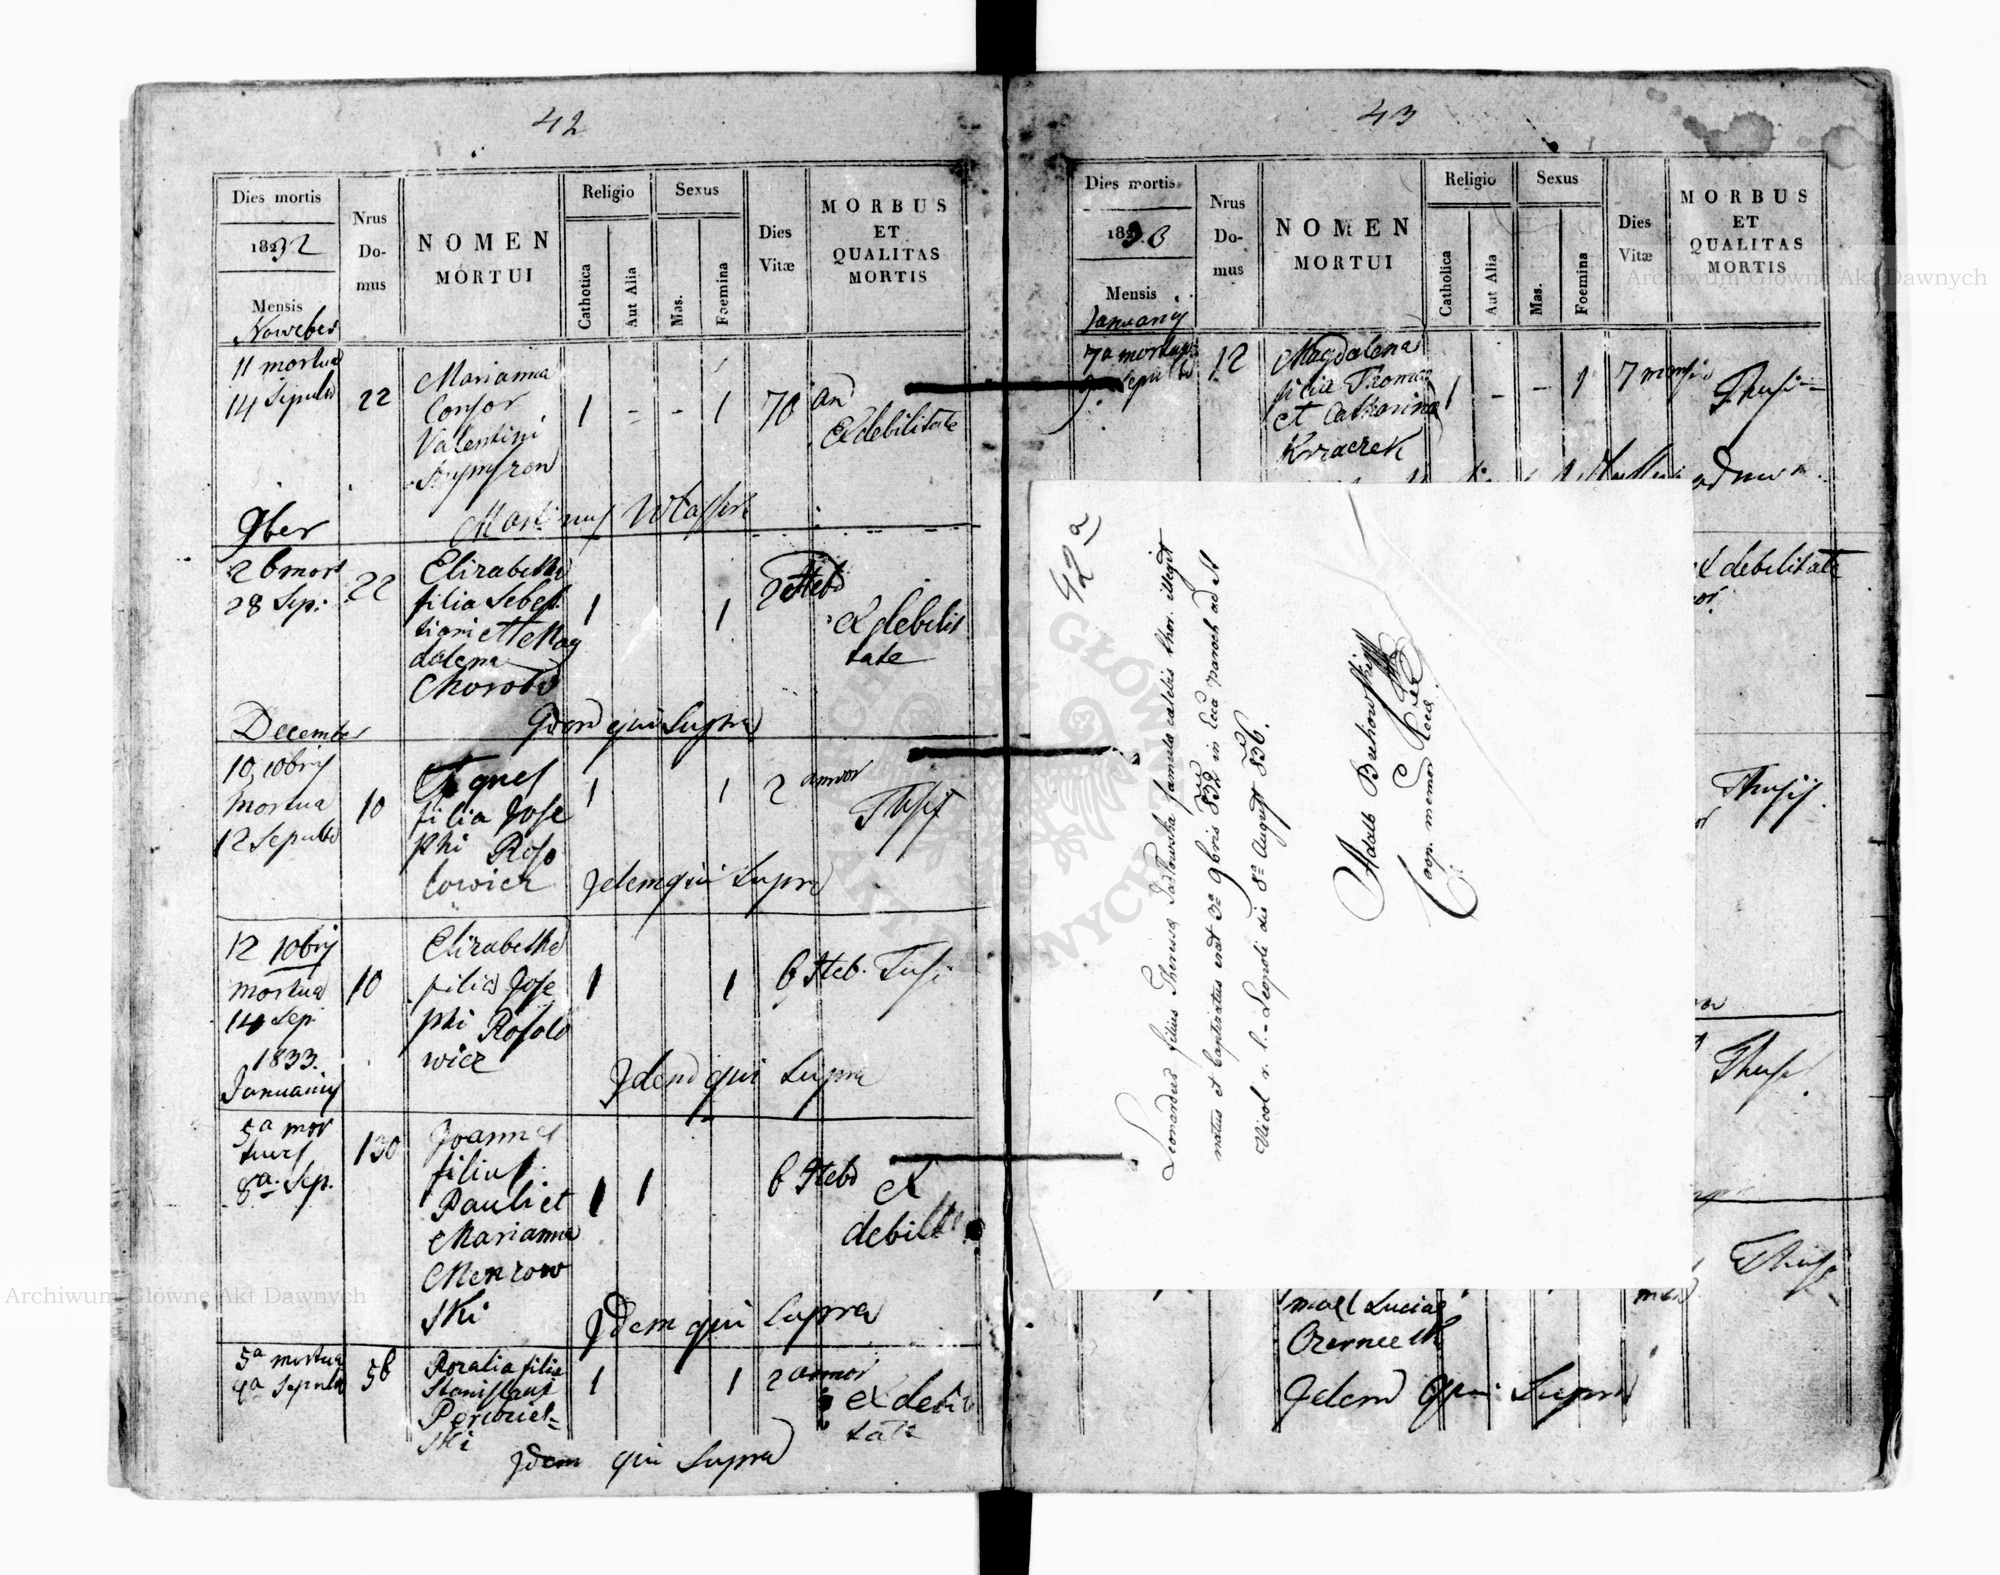 42
Dies mortis
1832
Mensis
Noweber
Nrus
Do-
mus
NOMEN
MORTUI
Religio
Catholica
Aut Alia
Sexus
Mas.
Foemina
Dies
Vitæ
MORBUS
ET
QUALITAS
MORTIS
11 mortua
14 Sepulta
22
Marianna
Consor
Valentini
1 - - 1
70 an
Ex debilitate
9ber
Martinus
26 mort
28 Sep:
22
Elizabetha
filia Sebest
tiani et Mag
dalena
Chorob
1 1
2 Heb
Ex debili
tate
Idem qui Supra
December
10 10bris
mortua
12 Sepulta
10
Agnes
filia Jose
phi Roso
lowicz
1 1
2 annor
Tussi
Idem qui Supra
12 10bris
mortua
14 Sep.
10
Elizabetha
filia Jose
phi Rosolo
wicz
1 1
6 Heb. Tussi
Idem qui Supra
1833.
Januarij
5a mor
tuus
8a. Sep.
130
Joannes
filius
Pauli et
Marianna
Menzow
ski
1 1
6 Heb
ex
debilit
Idem qui Supra
5a mortua
Sepulta
56
Rozalia filia
Stanislaus
ski
1 1
2 annor
ex debi
tate
Idem qui Supra
43
Dies mortis
1833
Mensis
Januarij
Nrus
Do-
mus
NOMEN
MORTUI
Religio
Catholica
Aut Alia
Sexus
Mas.
Foemina
Dies
Vitæ
MORBUS
ET
QUALITAS
MORTIS
7a mortua
12
Magdalena
filia Thoma
et Catharina
Krzaczek
1 - - 1
7 mensi
Thusi
ex debilitate
Thusis.
Thusi
Thusi
Lucia
Idem qui Supra
42a
Leonardus filius Theresa famula caelebis thor. illegit
natus et baptizatus erat 3a 9bris 832 in Ecca paroch ad St
Nicol r. l. Leopoli die 8a August 836.
Adalb
Coop. memor Ecca.
Archiwum Główne Akt Dawnych
Archiwum Główne Akt Dawnych
ARCHIWUM GŁÓWNE
AKT DAWNYCH